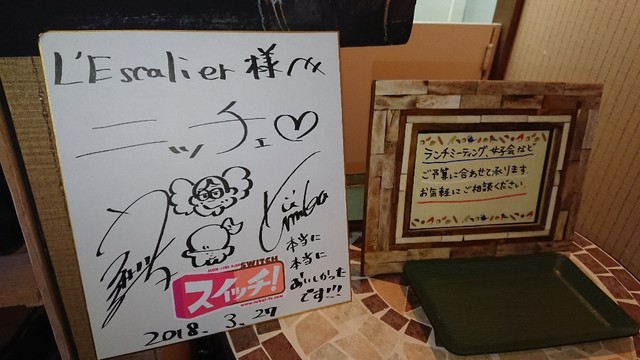 L'Escalier 様
ニッチェ♡
本当に
本当に
おいしかった
です!!!
SWITCH
スイッチ!
2018. 3. 27
ランチミーティング、女子会など
ご予算に合わせて承ります。
お気軽にご相談ください。